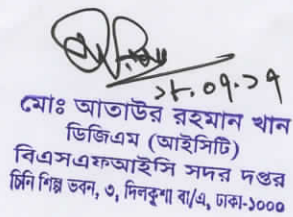 ২৮.০৭.২৭
মোঃ আতাউর রহমান খান
ডিজিএম (আইসিটি)
বিএসএফআইসি সদর দপ্তর
চিনি শিল্প ভবন, ৩, দিলকুশা বা/এ, ঢাকা-১০০০